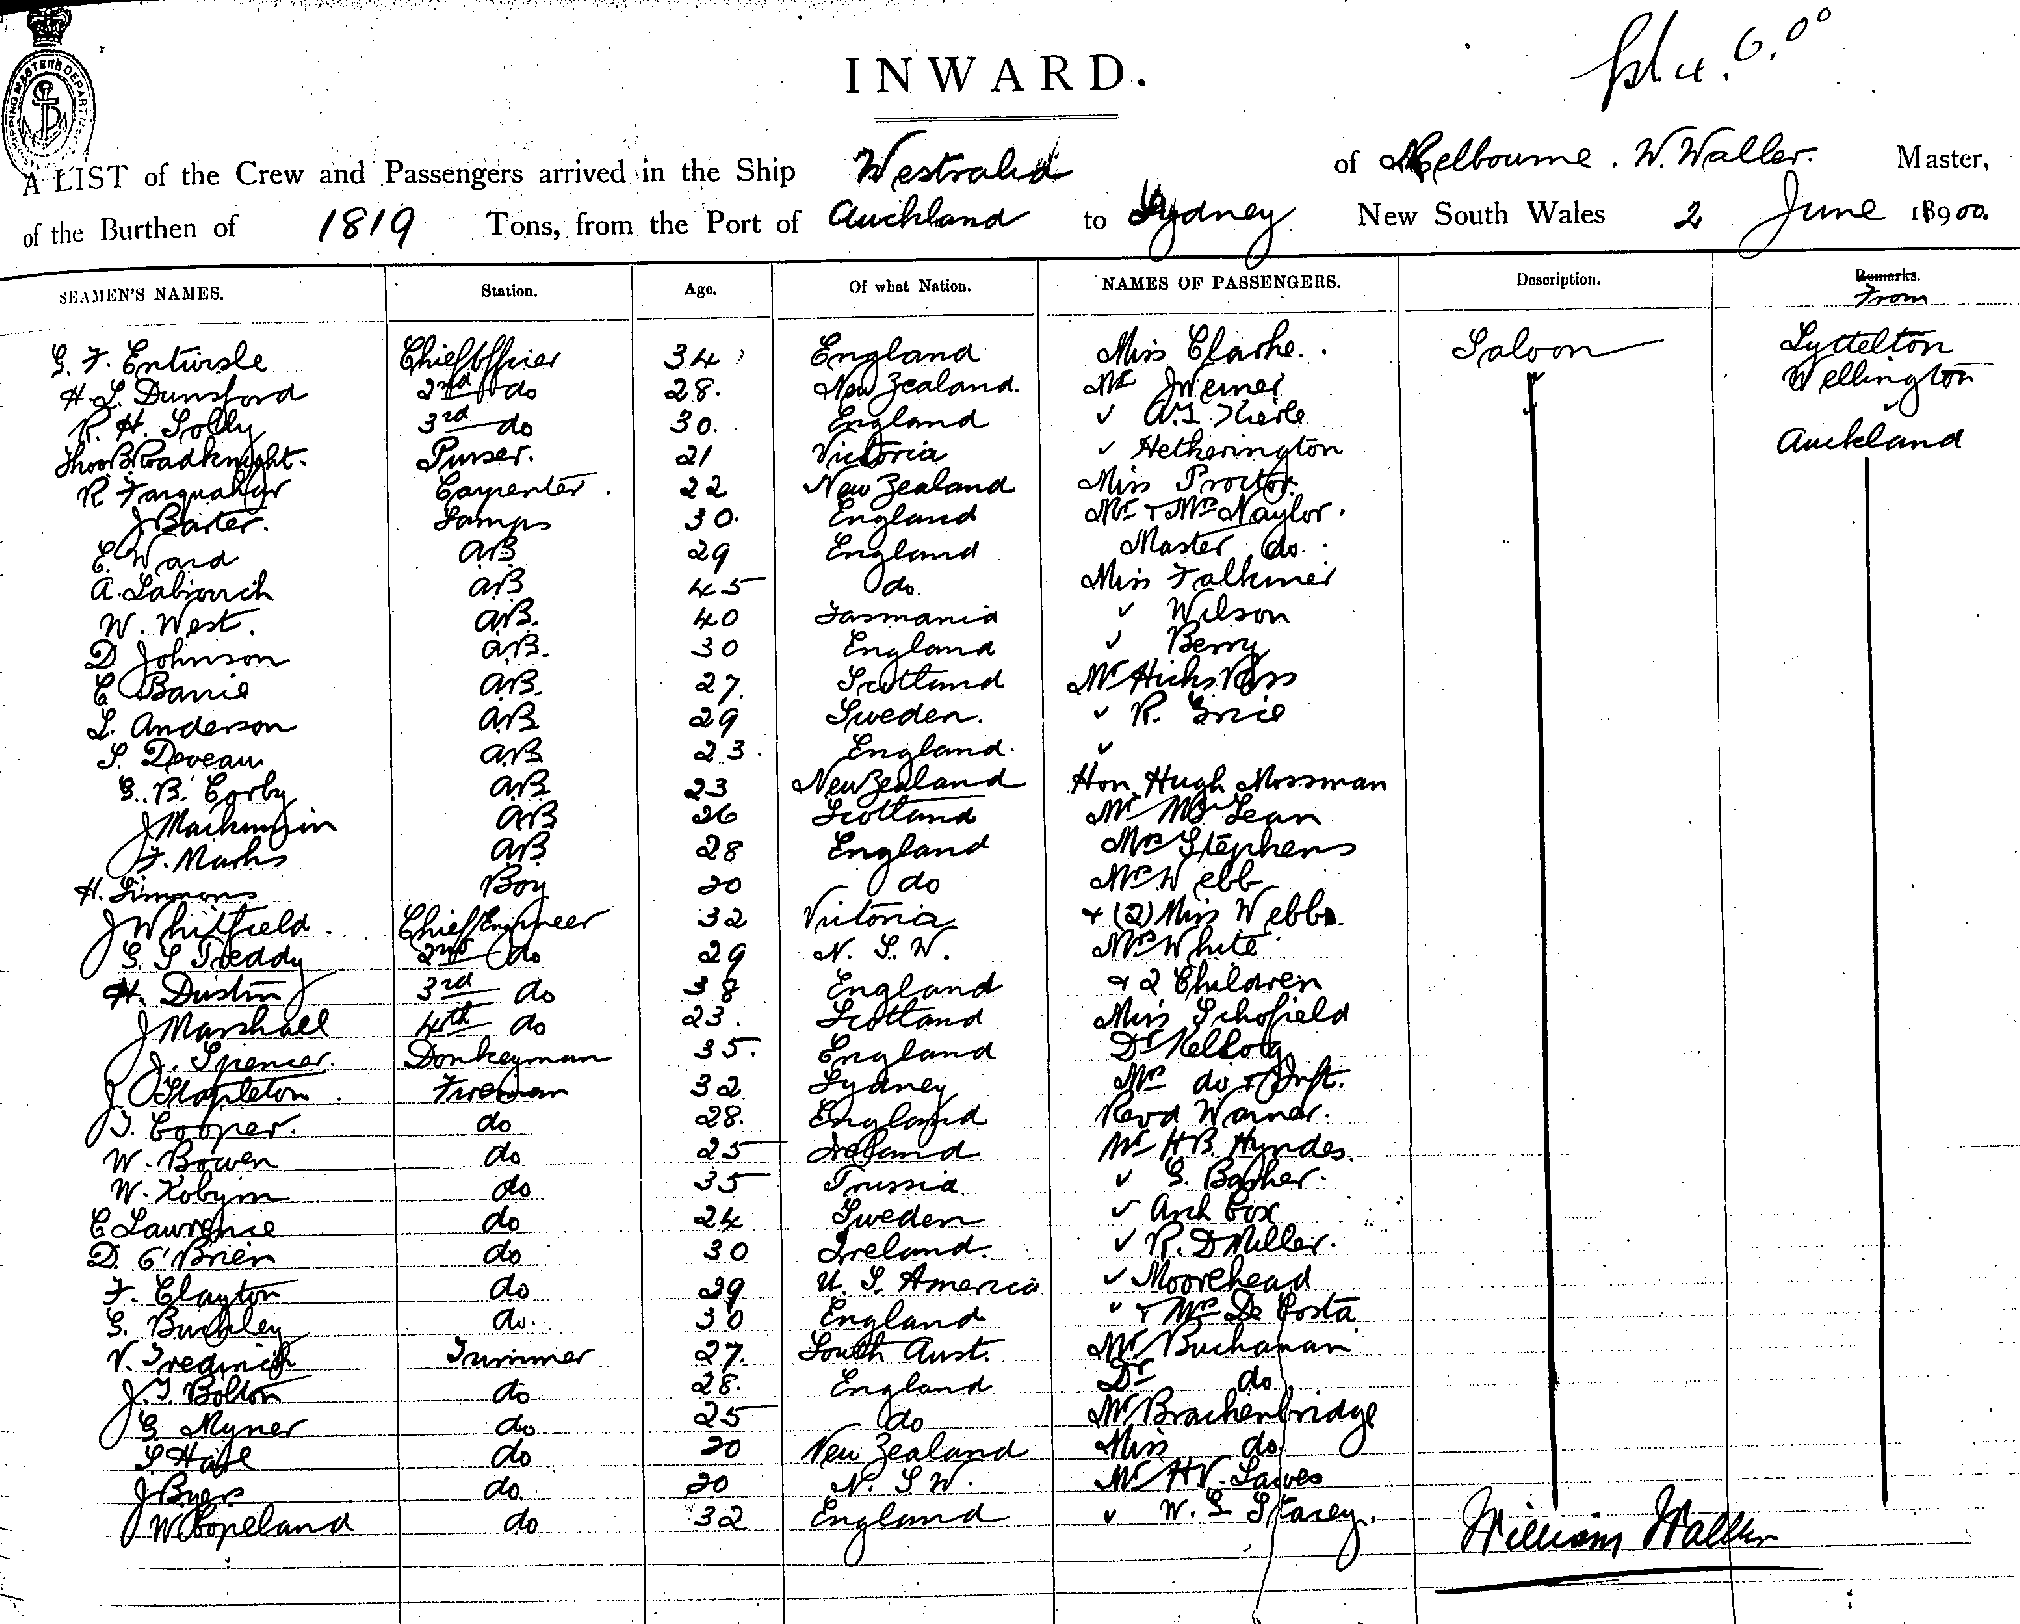 SHIPPING MASTER'S DEPARTMENT
INWARD.
A LIST of the Crew and Passengers arrived in the Ship Westralia of Melbourne. W. Waller. Master,
of the Burthen of 1819 Tons, from the Port of Auckland to Sydney New South Wales 2 June 1900.
SEAMEN'S NAMES. Station. Age. Of what Nation. NAMES OF PASSENGERS. Description. Remarks.
From
Chief Officer 34 England Miss Clarke. Saloon Lyttelton
H. L. Dunsford 2nd do 28. New Zealand. Mr Wellington
R. H. Solly 3rd do 30. England ✓
Thos Broadknight. Purser. 21 Victoria ✓ Hetherington Auckland
R Farquahar Carpenter. 22 New Zealand Miss Proctor.
J Baxter. Lamps 30. England Mr & Mrs Naylor.
E. Ward AB 29 England Master do.
A. AB 45 do. Miss Falkiner
W. West. AB. 40 Tasmania ✓ Wilson
D Johnson AB. 30 England ✓ Berry
AB. 27. Scotland Mr Hicks
L. Anderson AB 29 Sweden. ✓ R.
S. Deveau AB 23. England. ✓
G. B. Corby AB 23 New Zealand Hon. Hugh Mossman
J AB 26 Scotland Mr McLean
F. Marks AB 28 England Mrs Stephens
H. Simmons Boy 20 do Mrs Webb
J Whitfield. Chief Engineer 32 Victoria & (2) Miss Webbs.
G. S Treddy 2nd do 29 N. S. W. Mrs White
H. Dustin 3rd do 38 England & 2 Children
J Marshall 4th do 23. Scotland Miss Schofield
J. Spencer. Donkeyman 35. England Dr Kellog
J Stapleton. Fireman 32 Sydney Mrs do & Inft.
T. Cooper. do 28. England Revd Warner.
W. Bowen do 25 Ireland Mr H B Hyndes.
W. do 35 Prussia ✓ G.
C Lawrence do 24 Sweden ✓ Arch Cox
D. O'Brien do 30 Ireland. ✓ R. D Miller.
F. Clayton do 29 U. S. America ✓ Moorehead
G. Buckley do. 30 England ✓ & Mrs De Costa
Trimmer 27. South Aust. Mr Buchanan
J. T. Bolton do 28. England Dr do
G. Myner do 25 do Mr Brackenbridge
do 20 New Zealand Miss do
J Byers do. 20 N. S W. Mr H V. Lawes
W Copeland do 32 England ✓ W. G Stacey.
William Waller